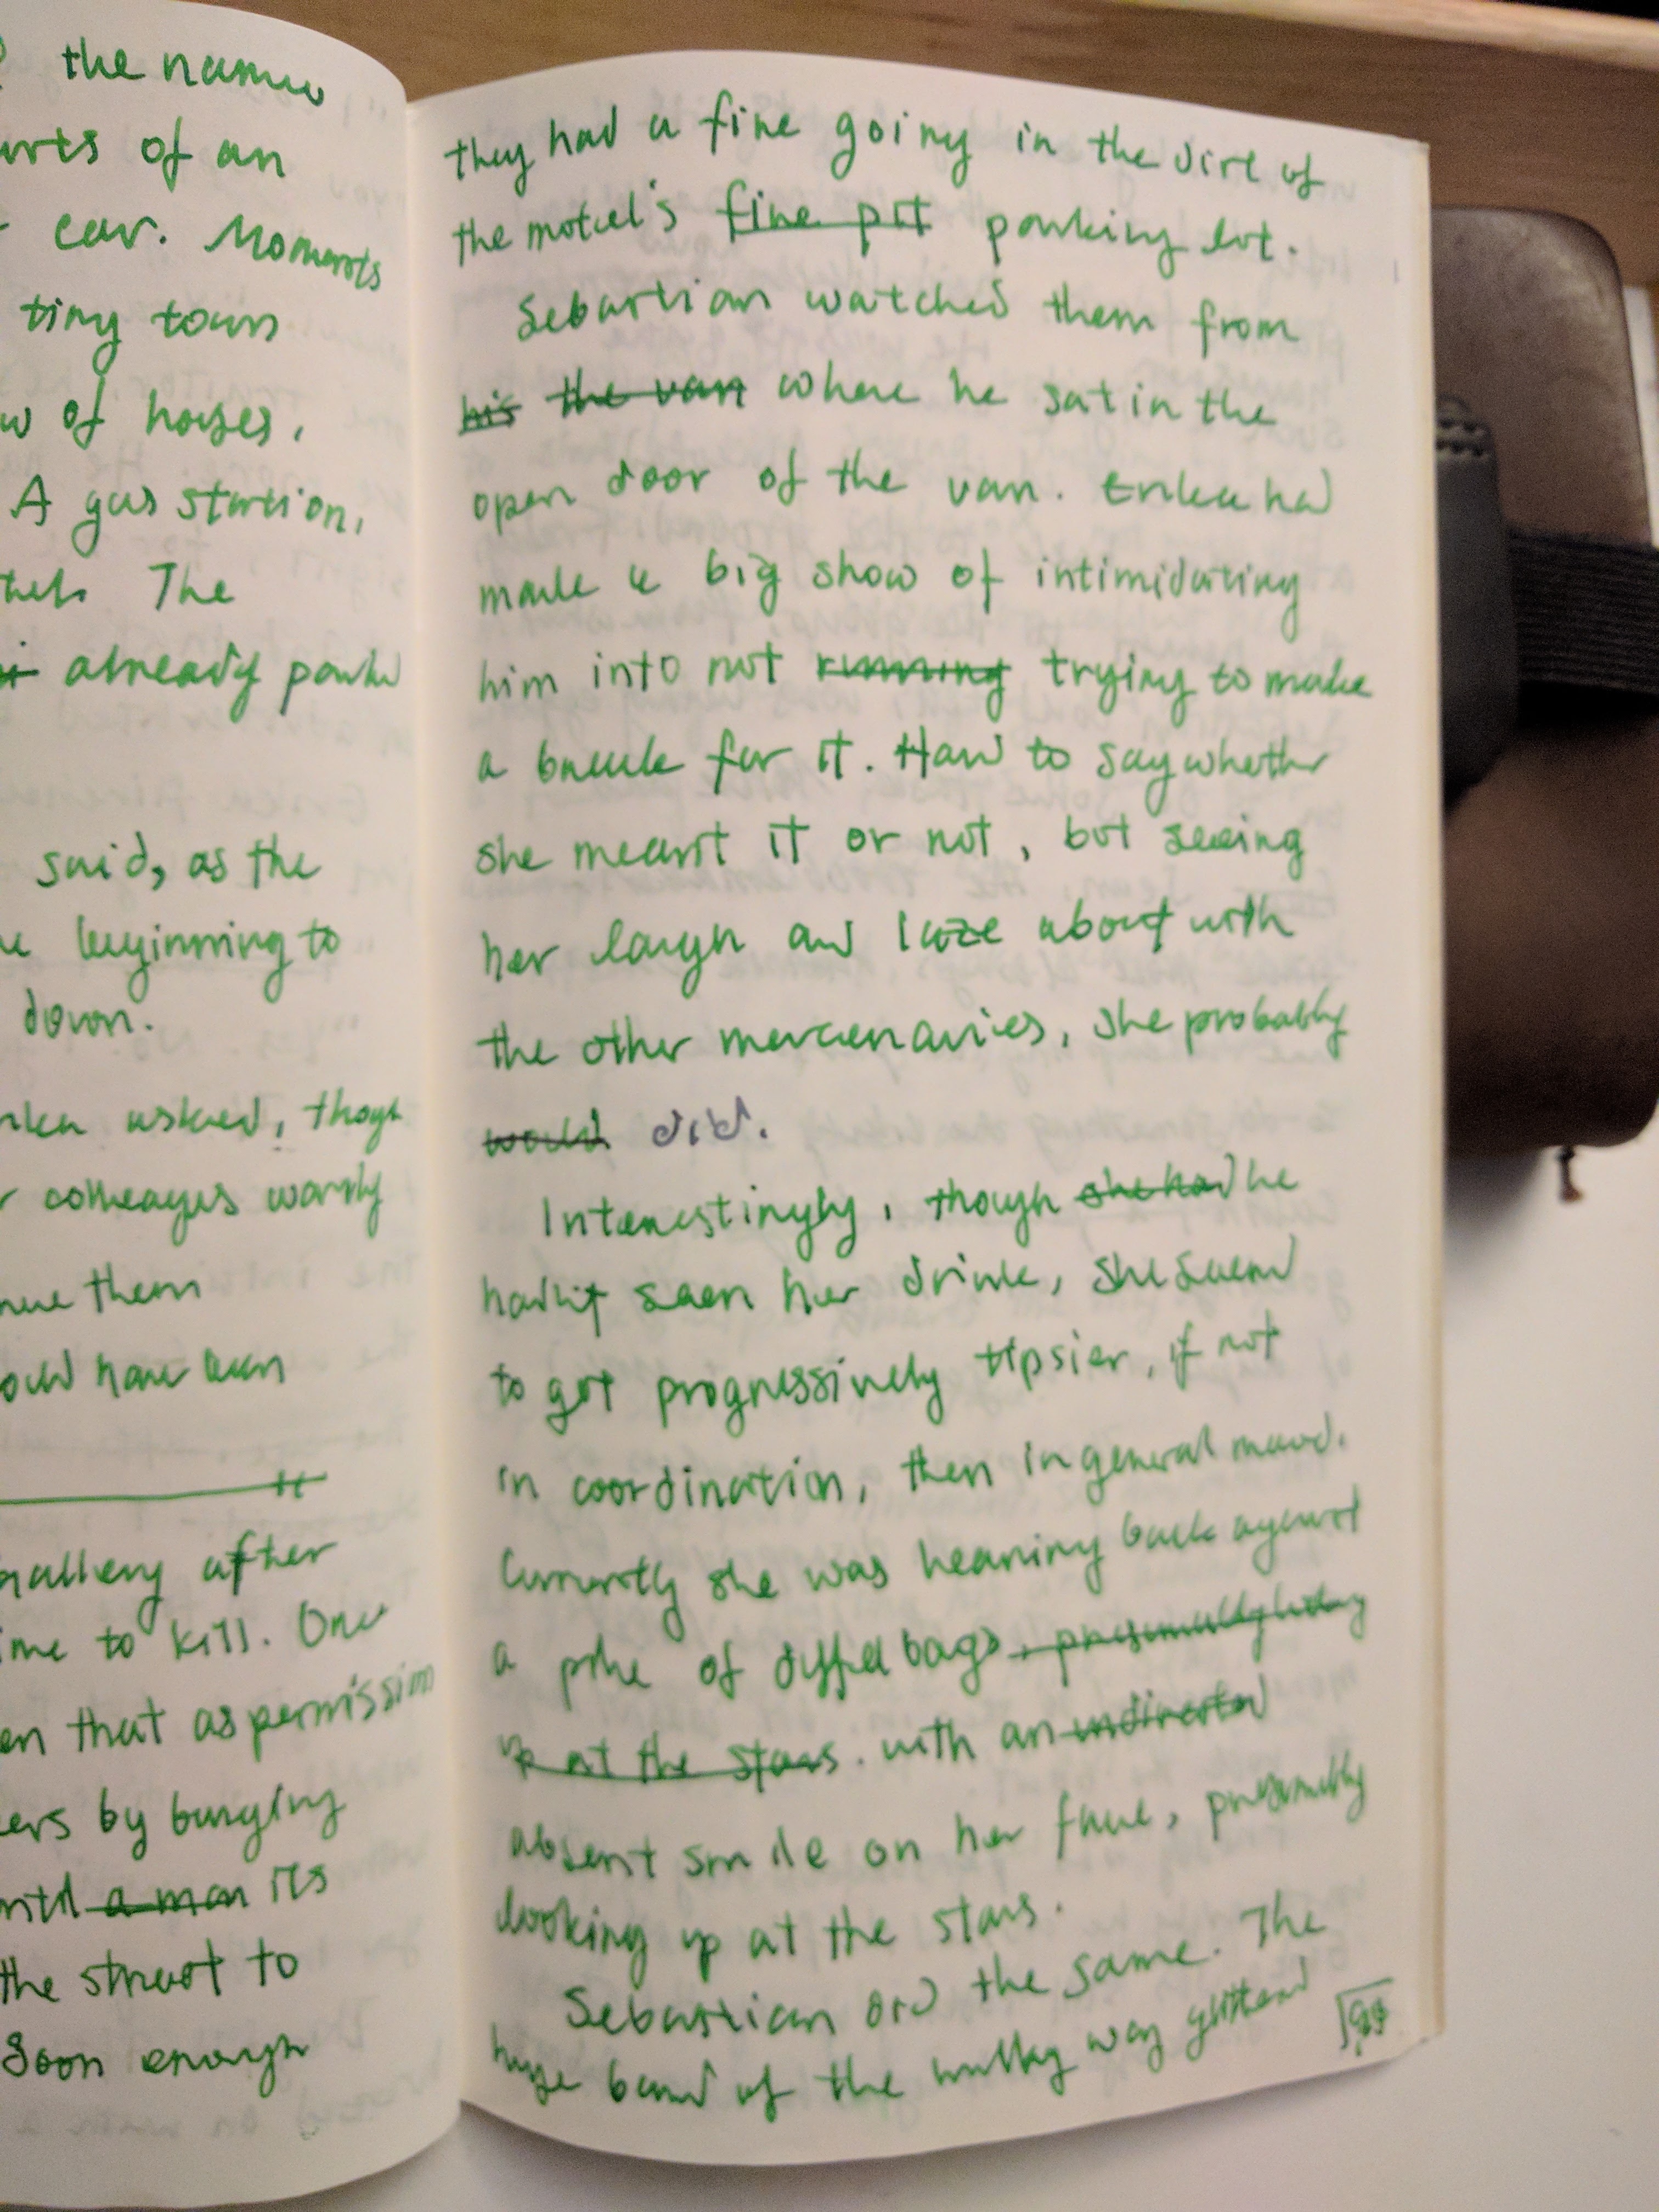 the names
of an
car. Moments
tiny town
of houses.
A gas station,
The
already parked
said, as the
beginning to
down.
asked, though
colleages warily
them
have been
after
to kill. One
that as permission
by burgling
a man its
the street to
Soon enough
they had a fire going in the dirt of
the motel's fire pit parking lot.
Sebastian watched them from
his the van where he sat in the
open door of the van. Erika had
made a big show of intimidating
him into not running trying to make
a break for it. Hard to say whether
she meant it or not, but seeing
her laugh and laze about with
the other mercenaries, she probably
would did.
Interestingly, though she had he
hadn't seen her drink, she seemed
to get progressively tipsier, if not
in coordination, then in general mood.
Currently she was leaning back against
a pile of duffel bags, presumably looking
up at the stars. with an undirected
absent smile on her face, presumably
looking up at the stars.
Sebastian did the same. The
huge band of the milky way glittered